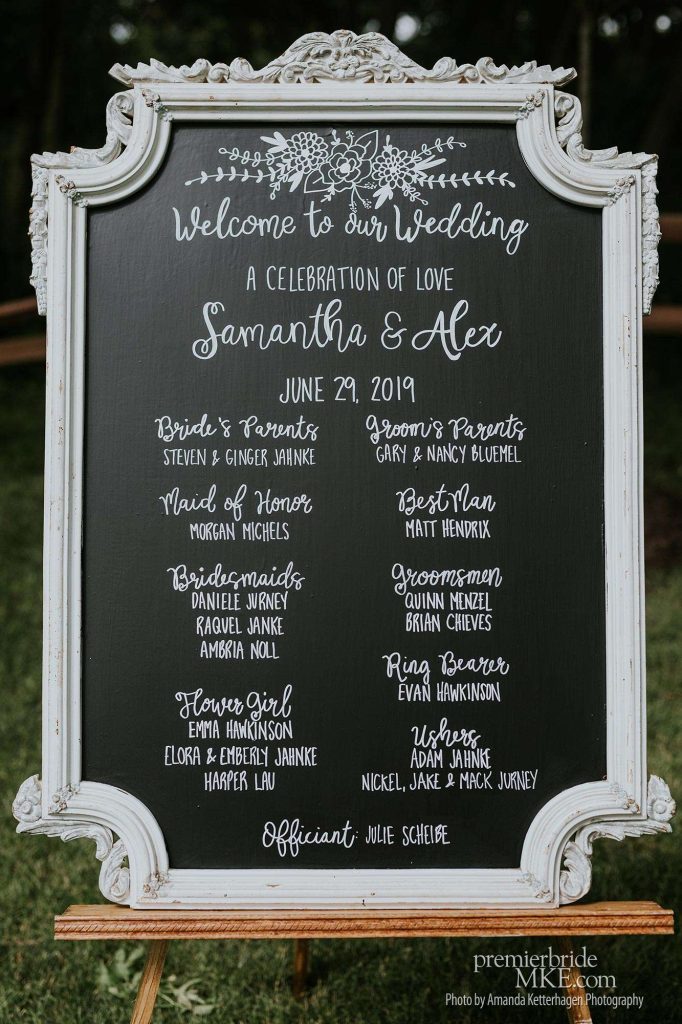 Welcome to our Wedding
A CELEBRATION OF LOVE
Samantha & Alex
JUNE 29, 2019
Bride's Parents
STEVEN & GINGER JAHNKE
Groom's Parents
GARY & NANCY BLUEMEL
Maid of Honor
MORGAN MICHELS
Best Man
MATT HENDRIX
Bridesmaids
DANIELE JURNEY
RAQUEL JANKE
AMBRIA NOLL
Groomsmen
QUINN MENZEL
BRIAN CHIEVES
Ring Bearer
EVAN HAWKINSON
Flower Girl
EMMA HAWKINSON
ELORA & EMBERLY JAHNKE
HARPER LAU
Ushers
ADAM JAHNKE
NICKEL, JAKE & MACK JURNEY
Officiant: JULIE SCHEIBE
premierbride
MKE.com
Photo by Amanda Ketterhagen Photography